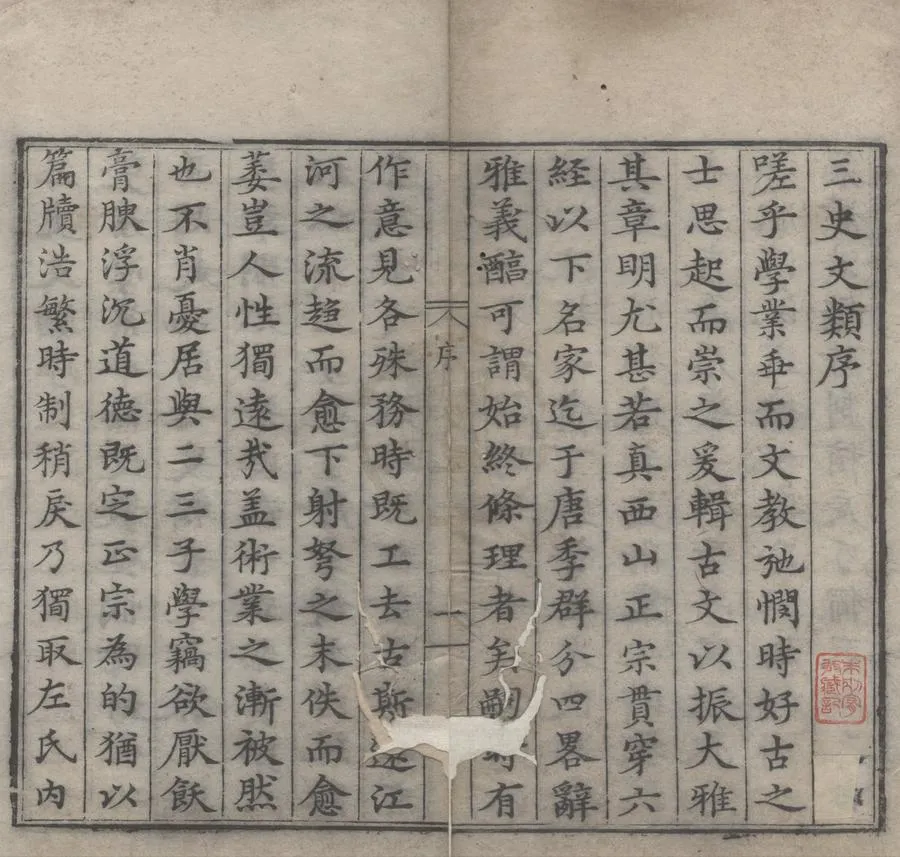 三史文類序
嗟乎學業乖而文教弛憫時好古之
士思起而崇之爰輯古文以振大雅
其章明尤甚若真西山正宗貫穿六
經以下名家迄于唐季群分四畧辭
雅義醕可謂始終條理者矣嗣時有
序
一
作意見各殊務時既工去古斯遠江
河之流趋而愈下射弩之末佚而愈
萎豈人性獨遠㢤盖術業之漸被然
也不肖憂居與二三子學竊欲厭飫
膏腴浮沉道德既定正宗為的猶以
篇牘浩繁時制稍戾乃獨取左氏内